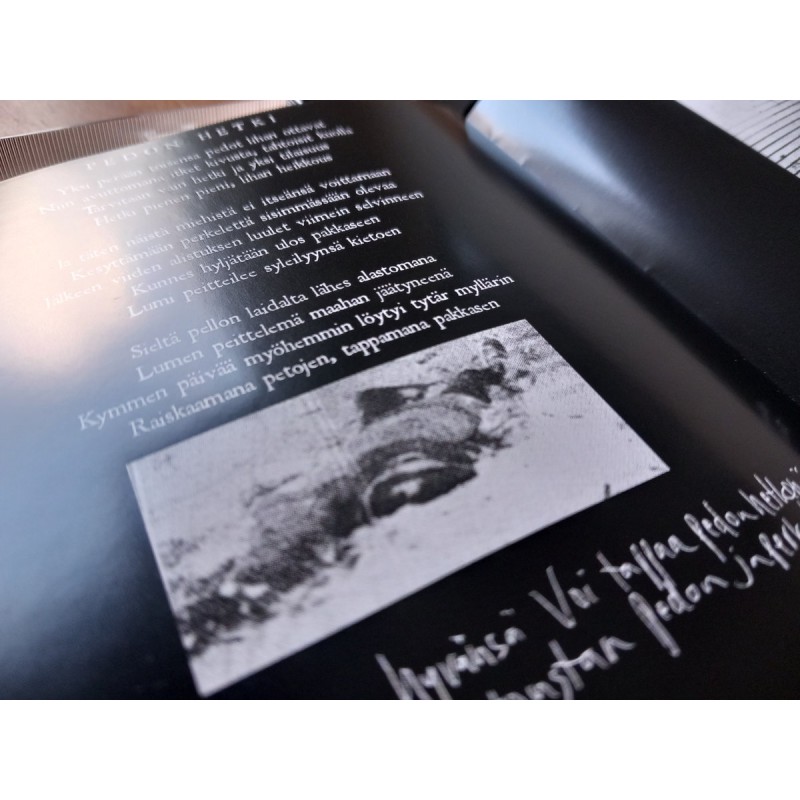 PEDON HETKI
Yksi perään toisensa pedot lihan ottavat
Niin avuttomana itket kivusta, tahtoisit kuolla
Tarvitaan vain hetki ja yksi tilaisuus
Hetki pienen pieni, lihan heikkous
täten näistä miehistä ei itseänsä voittamaan
Kesyttämään perkelettä sisimmässään olevaa
Jälkeen viiden alistuksen luulet viimein selvinneen
Kunnes hyljätään ulos pakkaseen
Lumi peittelee syleilyynsä kietoen
Sieltä pellon laidalta lähes alastomana
Lumen peittelemä maahan jäätyneenä
Kymmen päivää myöhemmin löytyi tytär myllärin
Raiskaamana petojen, tappamana pakkasen
hyvänsä Voi tappaa pedon hetkellä
pedon ja